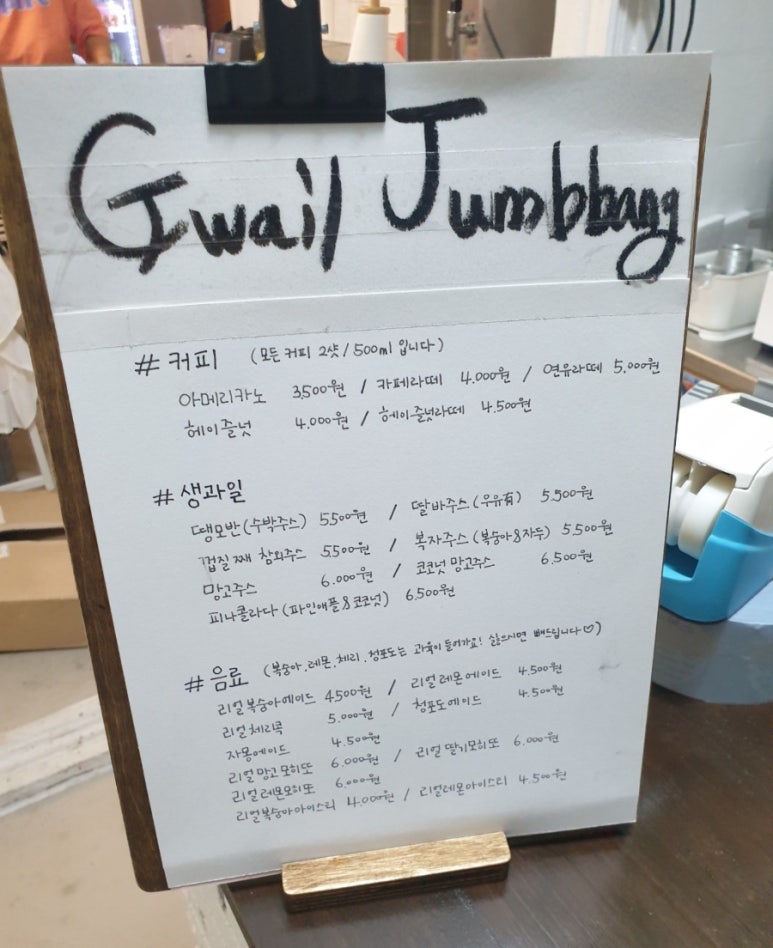 Gwail Jumbbang
# 커피 (모든 커피 2샷/500ml 입니다)
아메리카노 3,500원 / 카페라떼 4,000원 / 연유라떼 5,000원
헤이즐넛 4,000원 / 헤이즐넛라떼 4,500원
# 생과일
땡모반(수박주스) 5,500원 / 딸바주스(우유有) 5,500원
껍질째 참외주스 5,500원 / 복자주스(복숭아&자두) 5,500원
망고주스 6,000원 / 코코넛 망고주스 6,500원
피나콜라다(파인애플&코코넛) 6,500원
# 음료 (복숭아, 레몬, 체리, 청포도는 과육이 들어가요! 싫으시면 빼드립니다♡)
리얼복숭아에이드 4,500원 / 리얼레몬에이드 4,500원
리얼체리콕 5,000원 / 청포도에이드 4,500원
자몽에이드 4,500원
리얼망고모히또 6,000원 / 리얼딸기모히또 6,000원
리얼레몬모히또 6,000원
리얼복숭아아이스티 4,000원 / 리얼레몬아이스티 4,500원